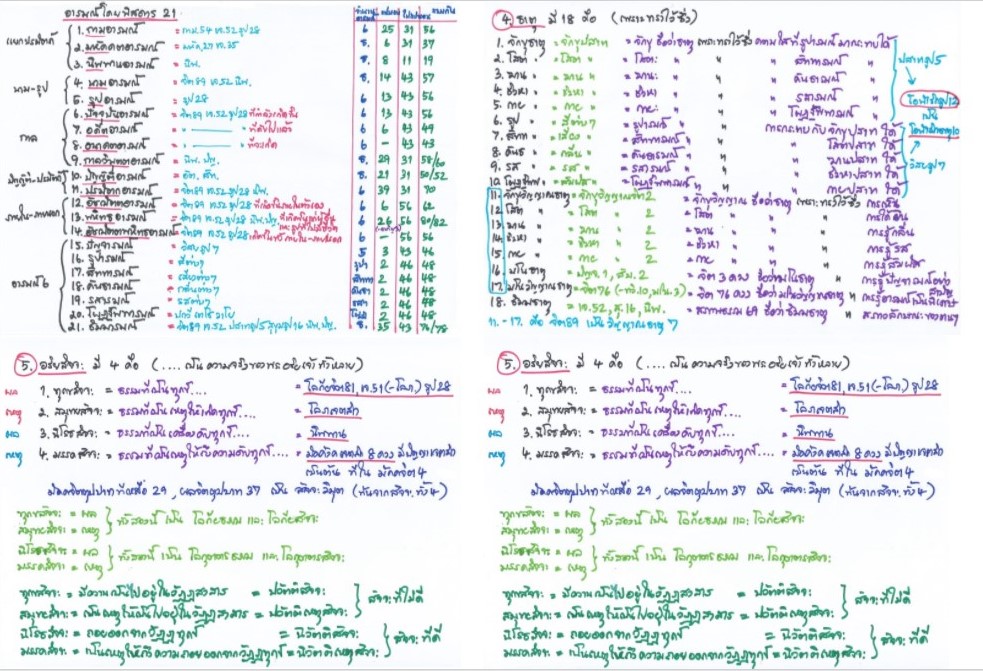 อารมณ์โดยพิสดาร 21
1. กามอารมณ์ = กาม.54 เจ.52 รูป28 6 25 31 56
2. มหัคคตอารมณ์ = มหัค.27 เจ.35 6 31 37
3. นิพพานอารมณ์ = นิพ. 8 11 19
นาม-รูป
4. นามอารมณ์ = จิต89 เจ.52 นิพ. 14 43 57
5. รูปอารมณ์ = รูป28 6 13 43 56
กาล
6. ปัจจุบันอารมณ์ = จิต89 เจ.52 รูป28 ที่กำลังเกิดขึ้น 6 13 43 56
7. อดีตอารมณ์ = " ที่ดับไปแล้ว 6 6 43 49
8. อนาคตอารมณ์ = " ที่จะเกิด 6 - 43 43
9. กาลวิมุตตอารมณ์ = นิพ. บัญ. 29 31 58/60
10. บัญญัติอารมณ์ 21 31 50/52
11. ปรมัตถอารมณ์ = จิต89 เจ.52 รูป28 นิพ. 6 39 31 70
12. อัชฌัตตอารมณ์ = จิต89 เจ.52 รูป28 6 6 56 62
13. พหิทธอารมณ์ = จิต89 เจ.52 รูป28 นิพ. บัญ. 6 26 56 90/82
14. อัชฌัตตพหิทธอารมณ์ = จิต89 เจ.52 รูป28 56 56
อารมณ์ 6
15. ปัญจารมณ์ = วิสยรูป7 5 3 43 46
16. รูปารมณ์ = สีต่างๆ 2 46 48
17. สัททารมณ์ = เสียงต่างๆ 2 46 48
18. คันธารมณ์ = กลิ่นต่างๆ 2 46 48
19. รสารมณ์ = รสต่างๆ 2 46 48
20. โผฏฐัพพารมณ์ = ปถวี เตโช วาโย 2 46 48
21. ธัมมารมณ์ = จิต89 เจ.52 ปสาทรูป5 สุขุมรูป16 นิพ. บัญ. 35 43 76/78
4. ธาตุ มี 18 คือ (เพราะทรงไว้ซึ่ง)
1. จักขุธาตุ = จักขุปสาท = จักขุ ชื่อว่าธาตุ เพราะทรงไว้ซึ่ง ความใสที่รูปารมณ์ มากระทบได้
2. โสต " = โสต " = โสตะ " " " สัททารมณ์ "
3. ฆาน " = ฆาน " = ฆานะ " " " คันธารมณ์ "
4. ชิวหา " = ชิวหา " = ชิวหา " " " รสารมณ์ "
5. กาย " = กาย " = กายะ " " " โผฏฐัพพารมณ์ "
ปสาทรูป5
6. รูป " = สีต่างๆ = รูปารมณ์ " " การกระทบกับ จักขุปสาท ได้
7. สัททะ " = เสียง " = สัททารมณ์ " " " โสตปสาท ได้
8. คันธ " = กลิ่น " = คันธารมณ์ " " " ฆานปสาท ได้
9. รส " = รส " = รสารมณ์ " " " ชิวหาปสาท ได้
10. โผฏฐัพพ " = สัมผัส " = โผฏฐัพพารมณ์ " " " กายปสาท ได้
วิสยรูป7
11. จักขุวิญญาณธาตุ = จักขุวิญญาณจิต2 = จักขุวิญญาณ ชื่อว่าธาตุ เพราะทรงไว้ซึ่ง การเห็น
12. โสต " = โสต " 2 = โสต " " " การได้ยิน
13. ฆาน " = ฆาน " 2 = ฆาน " " " การรู้กลิ่น
14. ชิวหา " = ชิวหา " 2 = ชิวหา " " " การรู้รส
15. กาย " = กาย " 2 = กาย " " " การรู้สัมผัส
16. มโนธาตุ = ปัญจ.1, สัม.2 = จิต 3 ดวง ชื่อว่ามโนธาตุ
17. มโนวิญญาณธาตุ = จิต76 (-ทวิ.10,มโน.3) = จิต 76 ดวง ชื่อว่ามโนวิญญาณธาตุ
18. ธัมมธาตุ = เจ.52, สุ.16, นิพ. = สภาพธรรม 69 ชื่อว่าธัมมธาตุ
11.-17. คือ จิต89 เป็น วิญญาณธาตุ 7
5. อริยสัจจะ มี 4 คือ (.... เป็น ความจริงของพระอริยเจ้า ทั้งหลาย)
ผล 1. ทุกขสัจจะ = ธรรมที่เป็นทุกข์.... = โลกียจิต81, เจ.51(-โลภะ) รูป28
เหตุ 2. สมุทยสัจจะ = ธรรมที่เป็นเหตุให้เกิดทุกข์.... = โลภเจตสิก
ผล 3. นิโรธสัจจะ = ธรรมที่เป็นเครื่องดับทุกข์.... = นิพพาน
เหตุ 4. มรรคสัจจะ = ธรรมที่เป็นเหตุให้ถึงความดับทุกข์.... = มัคคังคเจตสิก 8 ดวง มีปัญญาเจตสิก
เป็นต้น ที่ใน มัคคจิต4
มัคคจิตตุปปาท ที่เหลือ 29 , ผลจิตตุปปาท 37 เป็น สัจจะวิมุต (พ้นจากสัจจะ ทั้ง 4)
ทุกขสัจจะ = ผล
สมุทยสัจจะ = เหตุ } ทั้งสองนี้ เป็น โลกียธรรม และ โลกียสัจจะ
นิโรธสัจจะ = ผล
มรรคสัจจะ = เหตุ } ทั้งสองนี้ เป็น โลกุตตรธรรม และ โลกุตตรสัจจะ
ทุกขสัจจะ = มีความเป็นไปอยู่ในวัฏฏสงสาร = ปวัตติสัจจะ
สมุทยสัจจะ = เป็นเหตุให้เป็นไปอยู่ในวัฏฏสงสาร = ปวัตติเหตุสัจจะ } สัจจะที่ไม่ดี
นิโรธสัจจะ = ถอยออกจากวัฏฏทุกข์ = นิวัตติสัจจะ
มรรคสัจจะ = เป็นเหตุให้ถึงความถอยออกจากวัฏฏทุกข์ = นิวัตติเหตุสัจจะ } สัจจะที่ดี
5. อริยสัจจะ มี 4 คือ (.... เป็น ความจริงของพระอริยเจ้า ทั้งหลาย)
ผล 1. ทุกขสัจจะ = ธรรมที่เป็นทุกข์.... = โลกียจิต81, เจ.51(-โลภะ) รูป28
เหตุ 2. สมุทยสัจจะ = ธรรมที่เป็นเหตุให้เกิดทุกข์.... = โลภเจตสิก
ผล 3. นิโรธสัจจะ = ธรรมที่เป็นเครื่องดับทุกข์.... = นิพพาน
เหตุ 4. มรรคสัจจะ = ธรรมที่เป็นเหตุให้ถึงความดับทุกข์.... = มัคคังคเจตสิก 8 ดวง มีปัญญาเจตสิก
เป็นต้น ที่ใน มัคคจิต4
มัคคจิตตุปปาท ที่เหลือ 29 , ผลจิตตุปปาท 37 เป็น สัจจะวิมุต (พ้นจากสัจจะ ทั้ง 4)
ทุกขสัจจะ = ผล
สมุทยสัจจะ = เหตุ } ทั้งสองนี้ เป็น โลกียธรรม และ โลกียสัจจะ
นิโรธสัจจะ = ผล
มรรคสัจจะ = เหตุ } ทั้งสองนี้ เป็น โลกุตตรธรรม และ โลกุตตรสัจจะ
ทุกขสัจจะ = มีความเป็นไปอยู่ในวัฏฏสงสาร = ปวัตติสัจจะ
สมุทยสัจจะ = เป็นเหตุให้เป็นไปอยู่ในวัฏฏสงสาร = ปวัตติเหตุสัจจะ } สัจจะที่ไม่ดี
นิโรธสัจจะ = ถอยออกจากวัฏฏทุกข์ = นิวัตติสัจจะ
มรรคสัจจะ = เป็นเหตุให้ถึงความถอยออกจากวัฏฏทุกข์ = นิวัตติเหตุสัจจะ } สัจจะที่ดี